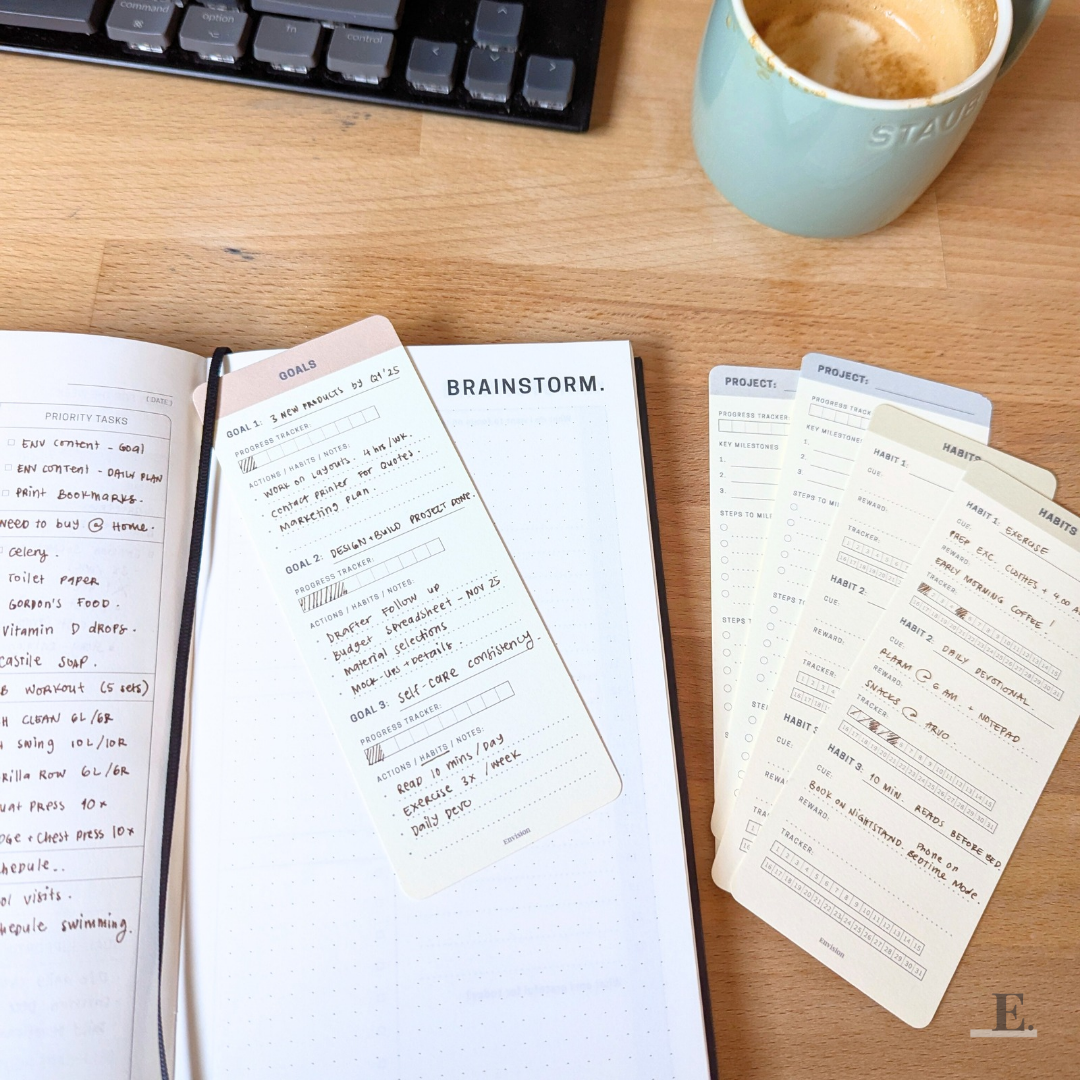 command
option
fn
control
STAUB
(DATE)
PRIORITY TASKS
ENV content - Goal
ENV CONTENT - DAILY PLAN
Print Bookmarks.
need to buy @ Home.
Celery.
Toilet PAPER
GORDON'S FOOD.
Vitamin D drops.
castile SOAP.
WORKOUT (5 sets)
CLEAN 6L/6R
swing 10L/10R
Row 6L/6R
PRESS 10x
+ Chest Press 10x
visits.
swimming.
GOALS
GOAL 1: 3 NEW PRODUCTS by Q4 '25
PROGRESS TRACKER:
ACTIONS / HABITS / NOTES:
• WORK on LAYOUTS. 4 HRS/WK.
• CONTACT PRINTER FOR QUOTES.
• Marketing plan.
GOAL 2: DESIGN + BUILD PROJECT DONE.
PROGRESS TRACKER:
ACTIONS / HABITS / NOTES:
• DRAFTER FOLLOW UP
• Budget spreadsheet - NOV 25
• Material selections
• Mock-ups + Details
GOAL 3: self-care consistency.
PROGRESS TRACKER:
ACTIONS / HABITS / NOTES:
• READ 10 mins / DAY
• Exercise 3x / week
• Daily Devo
Envision
BRAINSTORM.
PROJECT:
PROGRESS TRACKER
KEY MILESTONES
1.
2.
3.
STEPS TO MIL
STEPS
PROJECT:
PROGRESS TRACK
KEY MILE
1.
2.
3.
STEPS TO MIL
STEPS TO
HABITS
HABIT 1:
CUE:
REWARD:
TRACKER:
HABIT 2:
CUE:
REWARD:
TRACKER:
HABIT
CUE:
REWA
HABITS
HABIT 1: EXERCISE
CUE:
PREP EXC. CLOTHES + 4:00 A
REWARD:
EARLY MORNING COFFEE!
TRACKER:
HABIT 2: DAILY DEVOTIONAL
CUE:
ALARM @ 6 AM. + NOTEPAD
REWARD:
SNACKS @ ARVO
TRACKER:
HABIT 3: 10 MIN. READS BEFORE BED.
CUE:
BOOK ON NIGHTSTAND. Phone on BEDTIME MODE.
REWARD:
TRACKER:
1 2 3 4 5 6 7 8 9 10 11 12 13 14 15
16 17 18 19 20 21 22 23 24 25 26 27 28 29 30 31
Envision
E.